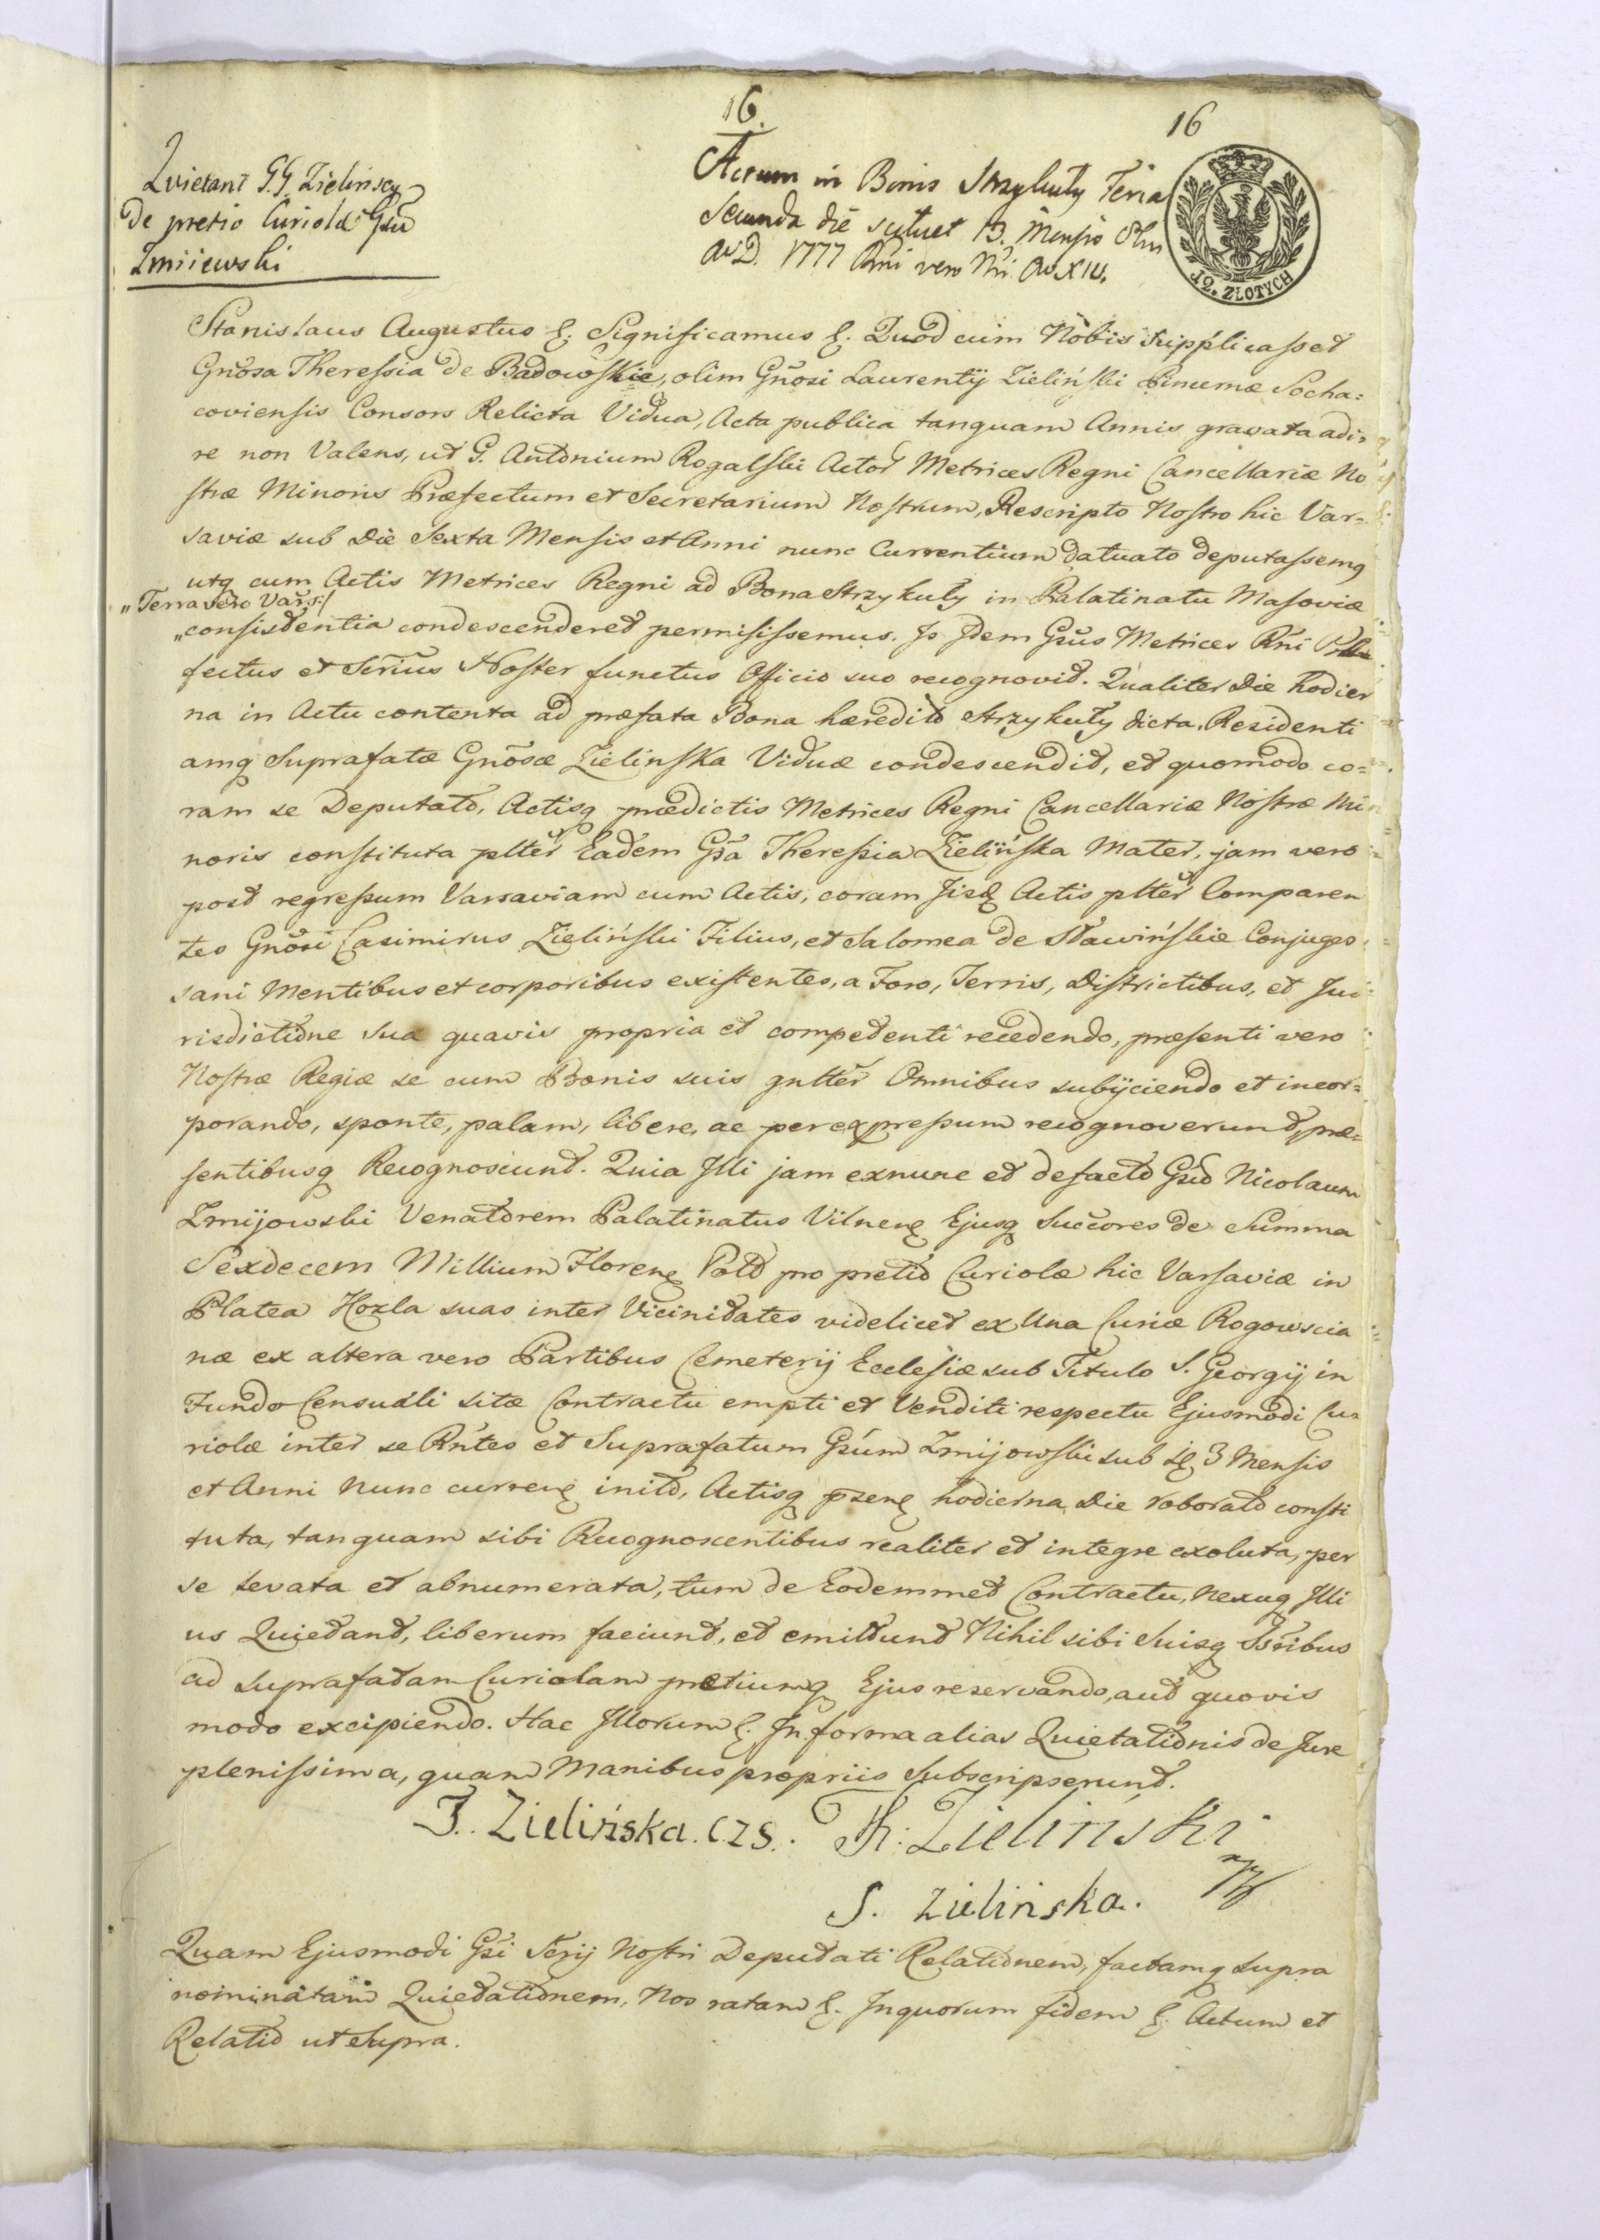 16.
16
Quietant G.G. Zielinscy
De pretio Curiolæ Gsū
Zmiiewski
Actum in Bonis Strzykuły Feria
Secunda die scilicet 13. Mensis
AoD. 1777 Rni vero Nri Ao XIV.
12. ZŁOTYCH
Stanislaus Augustus &. Significamus &. Quod cum Nobis supplicasset
Gnosa Theressia de Badowskie, olim Gnosi Laurentij Zieliński Pincernæ Socha=
coviensis Consors Relicta Vidua, Acta publica tanquam Annis gravata adi=
re non Valens, ut G. Antonium Rogalski Actor Metrices Regni Cancellariæ No
stræ Minoris Præfectum et Secretarium Nostrum, Rescripto Nostro hic Var=
saviæ sub Die Sexta Mensis et Anni nunc Currentium datuato deputassemq
utq cum Actis Metrices Regni ad Bona Strzykuły in Palatinatu Masoviæ
„Terra vero Vars:/
„consistentia condescenderet permisissemus. Is Idem Gsus Metrices Rni Præ
fectus et Scrius Noster functus Officio suo recognovit. Qualiter Die hodier
na in Actu contenta ad præfata Bona hæredit Strzykuły dicta, Residenti
amq Suprafatæ Gnosæ Zielinska Viduæ condescendit, et quomodo co=
ram se Deputato, Actisq prædictis Metrices Regni Cancellariæ Nostræ Mi
noris constituta pltter Eadem Gsa Theressia Zielińska Mater, jam vero
post regressum Varsaviam cum Actis, coram Iisd Actis pltter Comparen
tes Gnosi Casimirus Zieliński Filius, et Salomea de Sławińskie Conjuges
sani Mentibus et corporibus existentes, a Foro, Terris, Districtibus, et Ju
risdictione sua quavis propria et competenti recedendo, præsenti vero
Nostræ Regiæ se cum Bonis suis gnltter Omnibus subijciendo et incor=
porando, sponte, palam, libere, ac per expressum recognoverunt, præ=
sentibusq Recognoscunt. Quia Illi jam exnunc et defacto Gsū Nicolaum
Zmijowski Venatorem Palatinatus Vilnen Ejusq Succores de Summa
Sexdecem Millium Floren Pold pro pretio Curiolæ hic Varsaviæ in
Platea Hozla suas inter Vicinitates videlicet ex Una Curiæ Rogowscia
næ ex altera vero Partibus Cemeterij Ecclesiæ sub Titulo S. Georgij in
Fundo Censuali sitæ Contractu empti et Venditi respectu Ejusmodi Cu=
riolæ inter se Rntes et Suprafatum Gsum Zmijowski sub 3 Mensis
et Anni nunc curren inito, Actisq psen hodierna Die roborato consti
tuta, tanquam sibi Recognoscentibus realiter et integre exoluta, per
se levata et abnumerata, tum de Eodemmet Contractu, Nexuq Illi
us Quietant, liberum faciunt, et emittunt Nihil sibi Suisq Ssribus
ad suprafatam Curiolam pretiumq Ejus reservando, aut quovis
modo excipiendo. Hac Illorum &. In forma alias Quietationis de Jure
plenissima, quam Manibus propriis Subscripserunt.
T. Zielińska. C Z S. K: Zieliński
S. Zielińska.
Quam Ejusmodi Gsi Scrij Nostri Deputati Relationem, factamq supra
nominatam Quietationem, Nos ratam &. In quorum fidem &. Actum et
Relatio ut Supra.